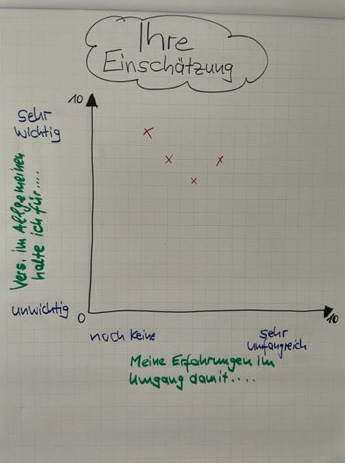 Ihre
Einschätzung
10
sehr
wichtig
Vers. im Allgemeinen
halte ich für....
unwichtig
0
10
noch keine
sehr
umfangreich
Meine Erfahrungen im
Umgang damit....